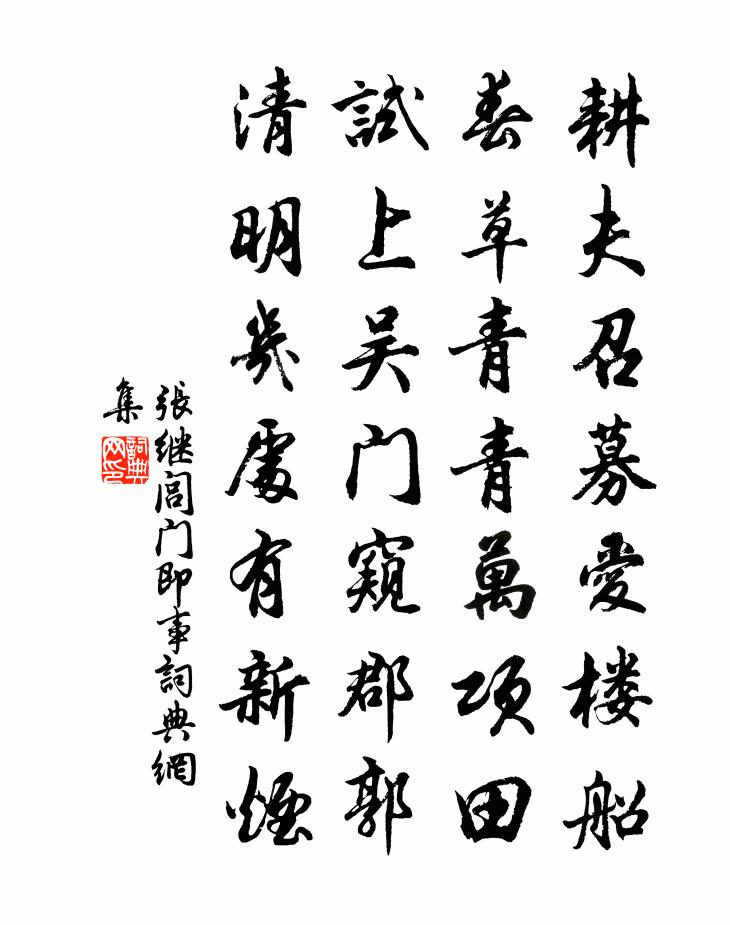 耕夫召募愛楼船
春草青青萬項田
試上吴门窺郡郭
清明幾處有新煙
張继閶门即事詞典網
集
詞典
网印